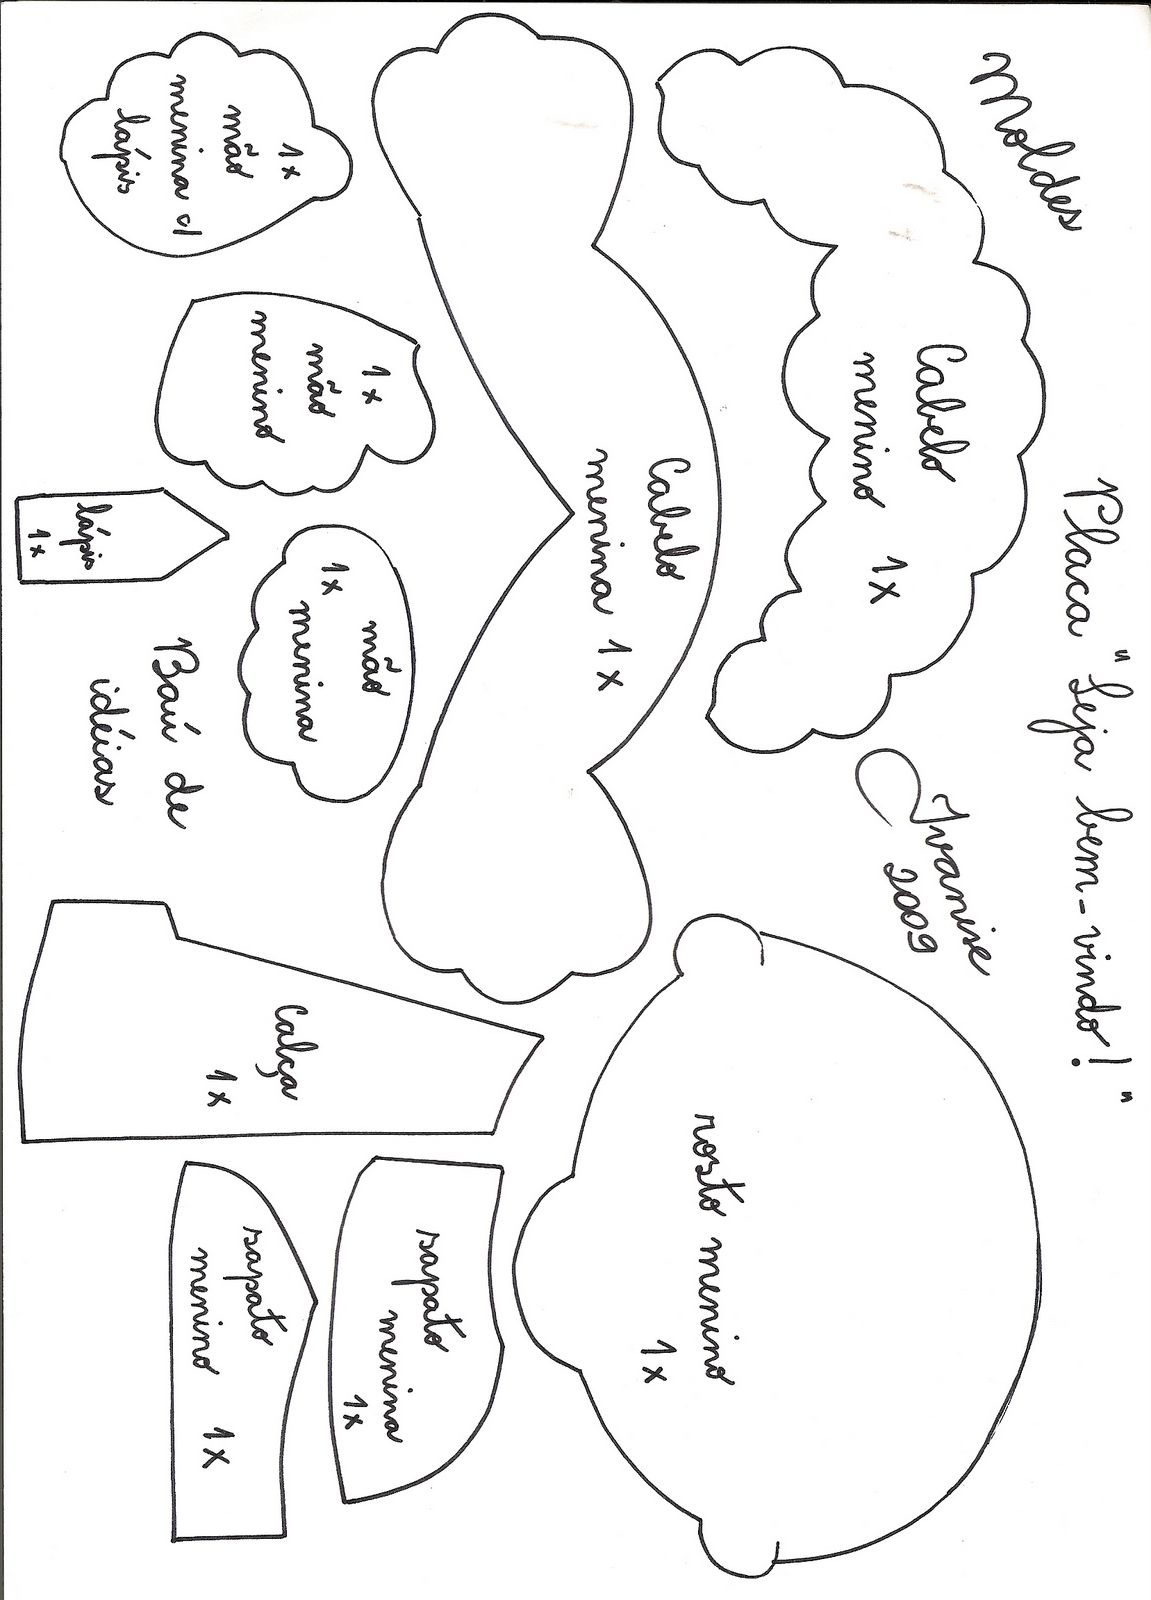 Moldes
Placa "Seja bem-vindo!"
Ivanise
2009
Cabelo
menino 1x
Cabelo
menina 1x
1x
mão
menina c/
lápis
1x
mão
menino
lápis
1x
mão
1x menina
Baú de
idéias
rosto menino
1x
calça
1x
sapato
menina
1x
sapato
menino 1x